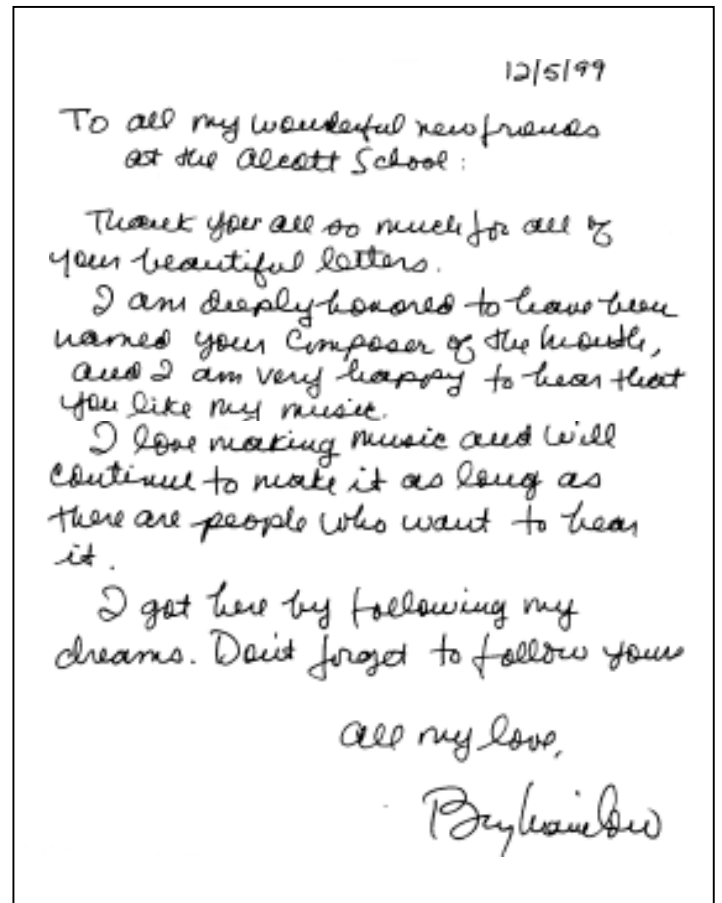 12/5/99
To all my wonderful new friends
at the Alcott School:
Thank you all so much for all of
your beautiful letters.
I am deeply honored to have been
named your Composer of the Month,
and I am very happy to hear that
you like my music.
I love making music and will
continue to make it as long as
there are people who want to hear
it.
I got here by following my
dreams. Don't forget to follow yours
all my love,
Barry Manilow